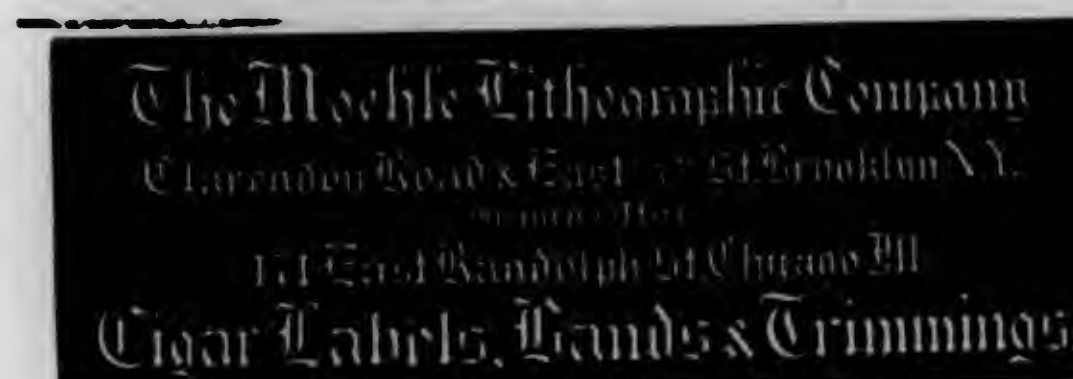 The Moehle Lithographic Company
Clarendon Road & East St. Brooklyn N.Y.
Branch Office
171 East Randolph St. Chicago Ill
Cigar Labels, Bands & Trimmings